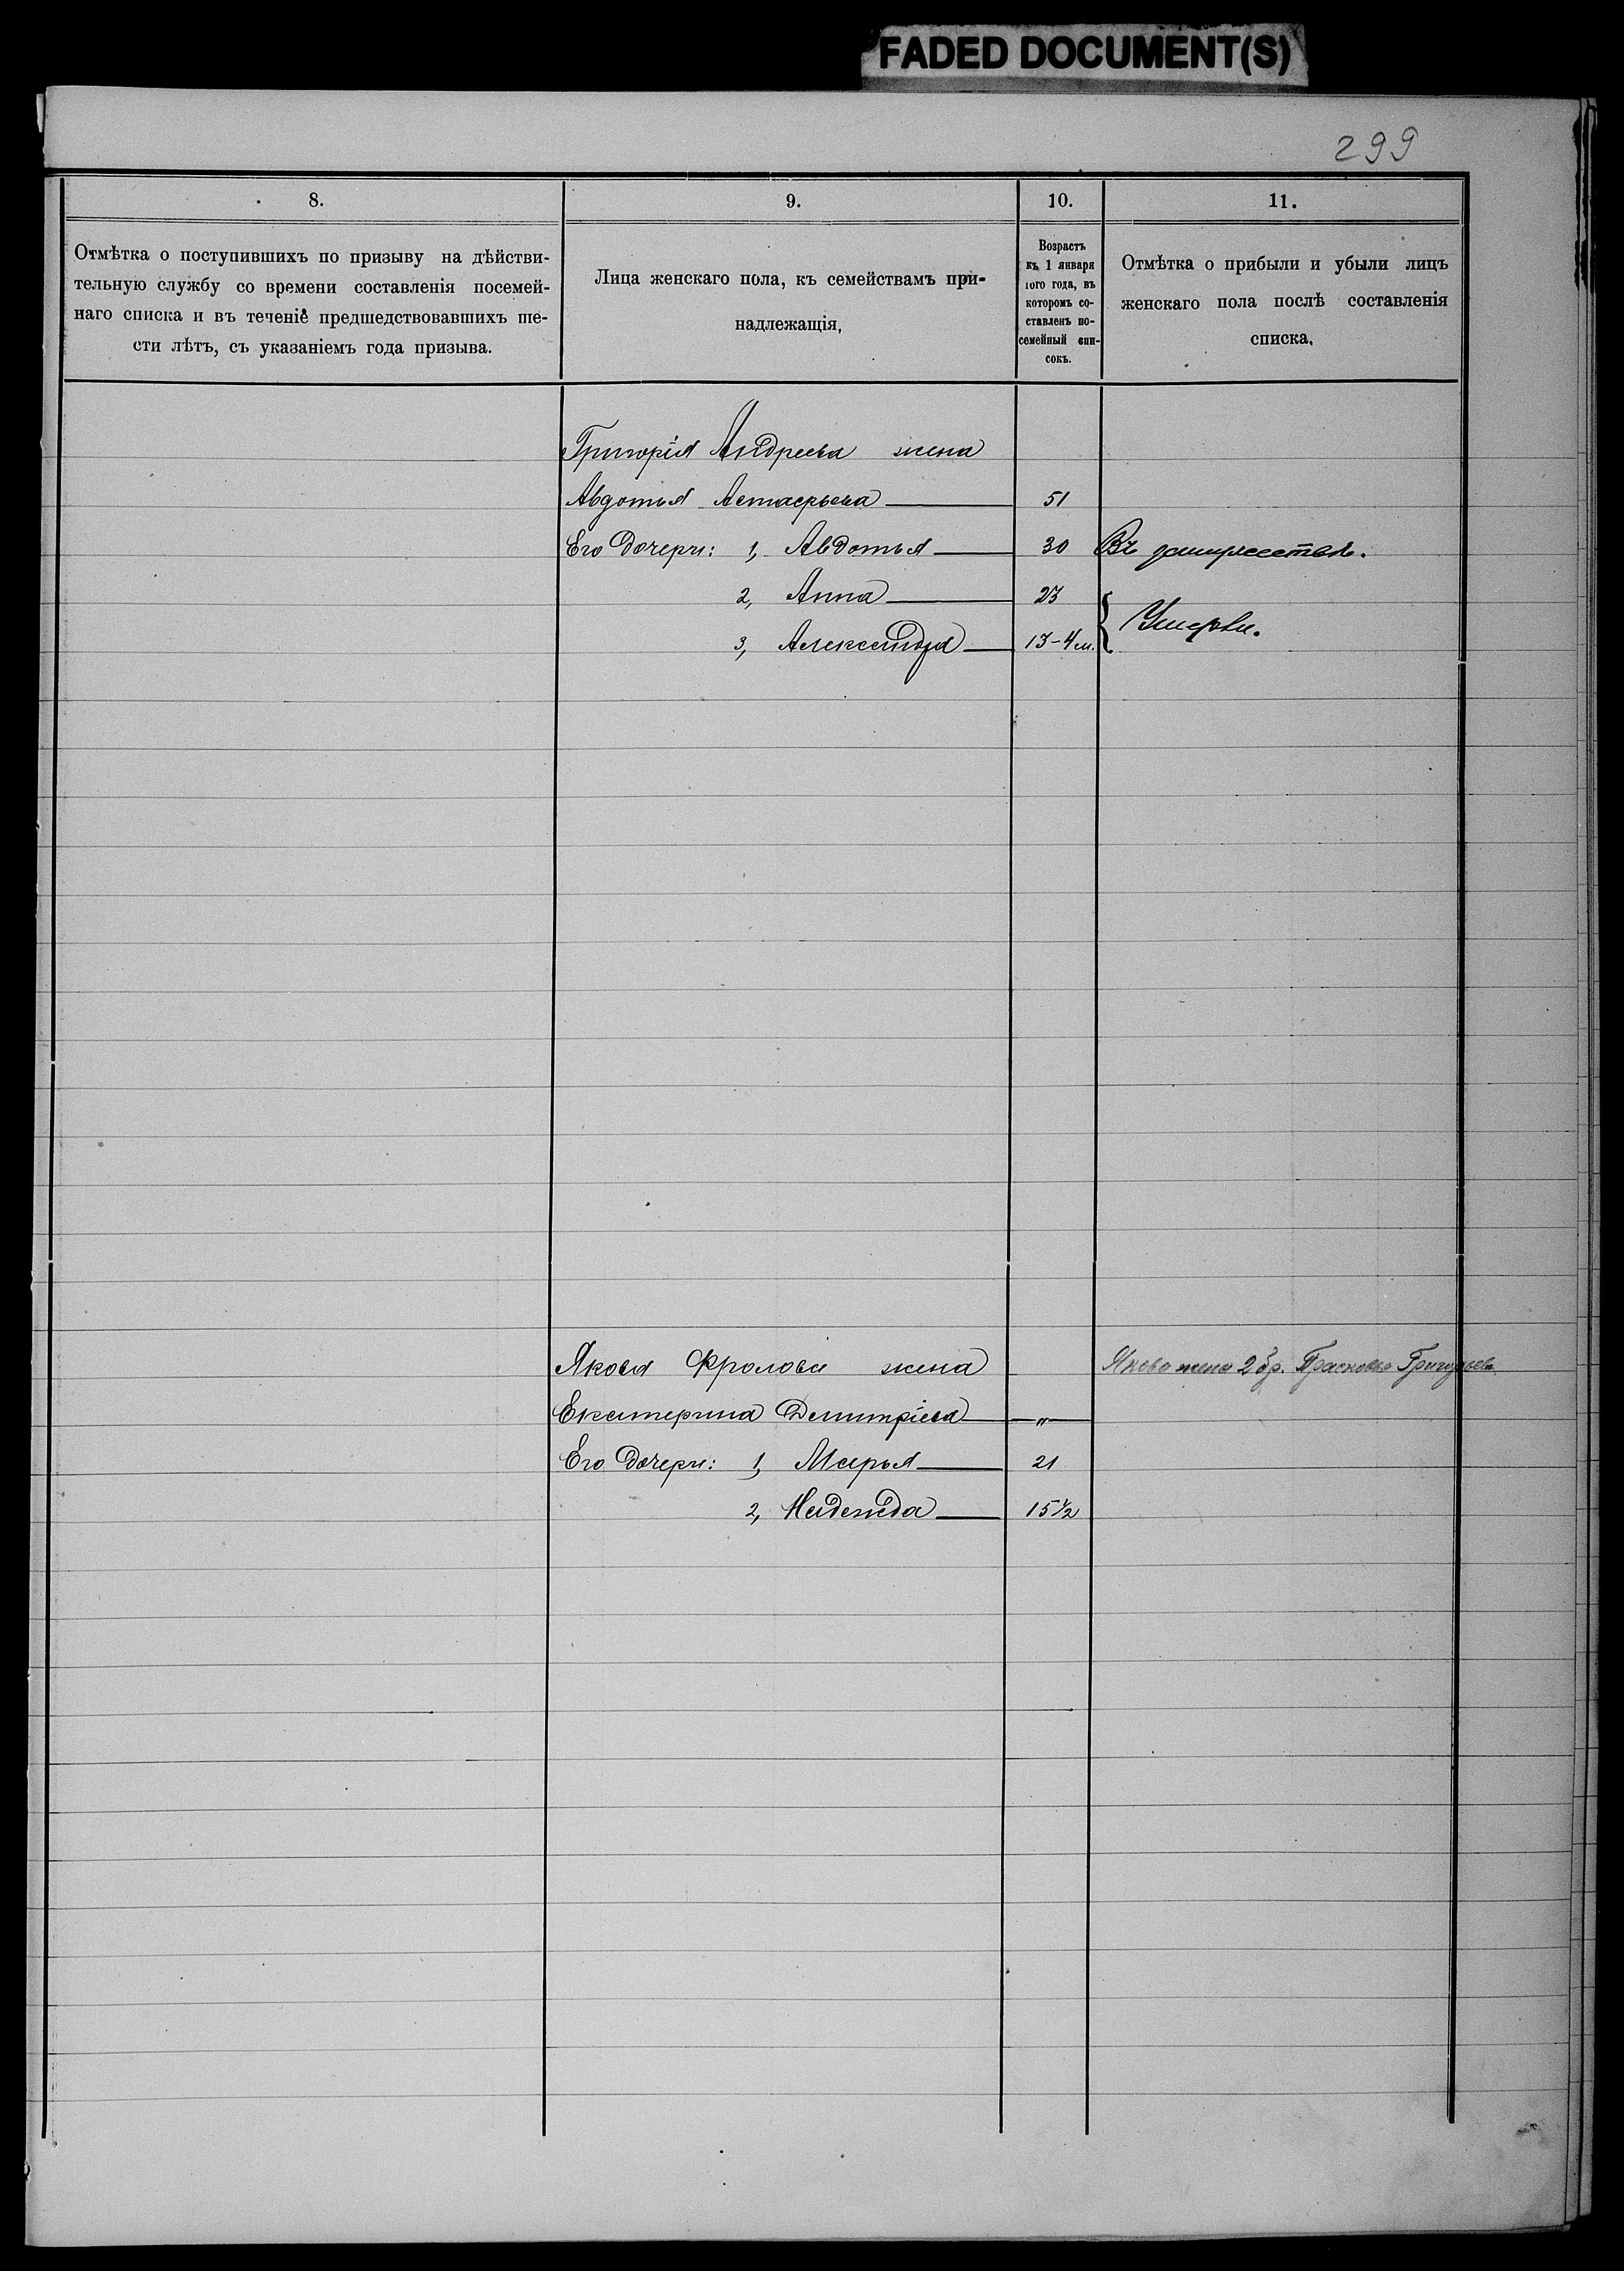 FADED DOCUMENT(S)
299
8.
9.
10.
11.
Отмѣтка о поступившихъ по призыву на дѣйстви-
тельную службу со времени составленія посемей-
наго списка и въ теченіе предшедствовавшихъ ше-
сти лѣтъ, съ указаніемъ года призыва.
Лица женскаго пола, къ семействамъ при-
надлежащія,
Возрастъ
къ 1 января
того года, въ
которомъ со-
ставленъ по-
семейный спи-
сокъ.
Отмѣтка о прибыли и убыли лицъ
женскаго пола послѣ составленія
списка.
Григорія Андреева жена
Авдотья Астафьева 51
Его дочери: 1, Авдотья 30 Въ замужествѣ.
2, Анна 23
3, Александра 13-4 м. Умерли.
Якова Фролова жена Якова жена 2 бр. Прасковья Григорьева
Екатерина Димитріева "
Его дочери: 1, Марья 21
2, Надежда 15 1/2